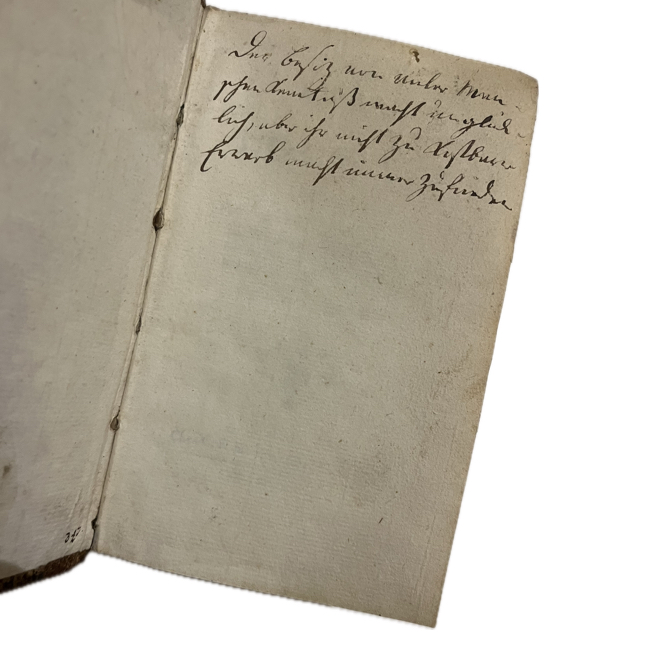 Der Besitz von vieler Men-
schenkentniß macht unglück-
lich, aber ihr nicht zu kostbarer
Erwerb macht immer zufrieden